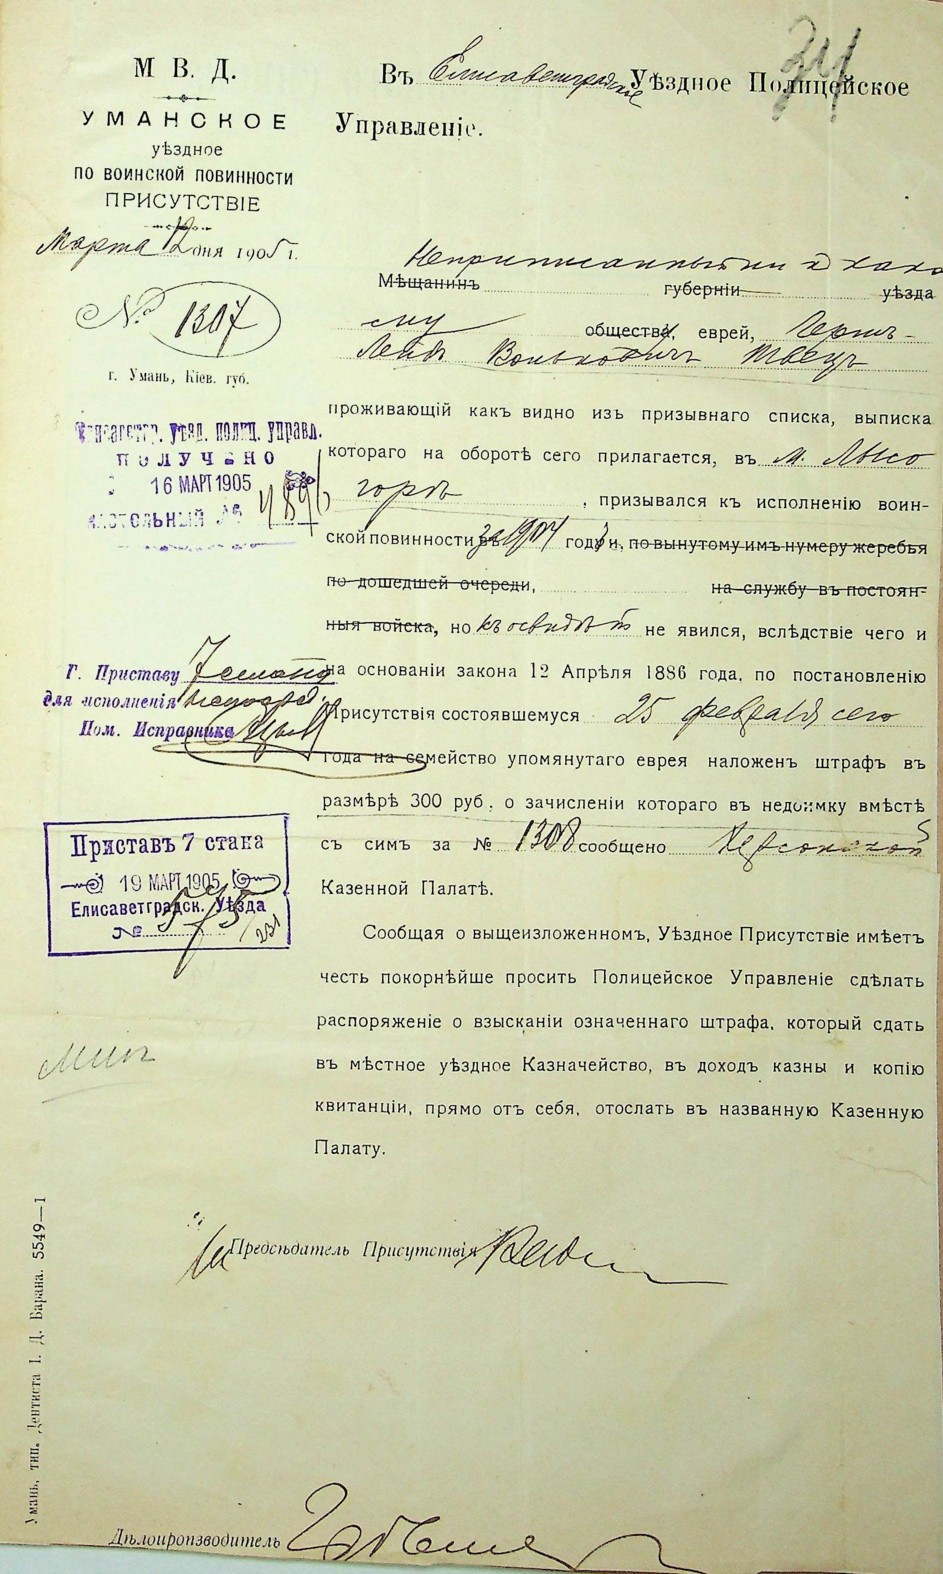 34
М В. Д.
УМАНСКОЕ
уѣздное
ПО ВОИНСКОЙ ПОВИННОСТИ
ПРИСУТСТВІЕ
Марта 12 дня 1905 г.
№ 1307
г. Умань, Кіев. губ.
Въ Елисаветградское Уѣздное Полицейское
Управленіе.
Неприписанный ни къ како
Мѣщанинъ губерніи уѣзда
му обществу, еврей, Герш-
Лейб Волькович Швецъ
проживающій какъ видно изъ призывнаго списка, выписка
котораго на оборотѣ сего прилагается, въ м. Лысо
горѣ, призывался къ исполненію воин-
ской повинности за 1904 годъ и, по вынутому имъ нумеру жеребья
по дошедшей очереди, на службу въ постоян-
ныя войска, но къ освидѣт не явился, вслѣдствіе чего и
на основаніи закона 12 Апрѣля 1886 года, по постановленію
Присутствія состоявшемуся 25 февраля сего
года на семейство упомянутаго еврея наложенъ штрафъ въ
размѣрѣ 300 руб. о зачисленіи котораго въ недоимку вмѣстѣ
съ симъ за № 1308 сообщено Херсонской
Казенной Палатѣ.
Сообщая о выщеизложенномъ, Уѣздное Присутствіе имѣетъ
честь покорнѣйше просить Полицейское Управленіе сдѣлать
распоряженіе о взысканіи означеннаго штрафа, который сдать
въ мѣстное уѣздное Казначейство, въ доходъ казны и копію
квитанціи, прямо отъ себя, отослать въ названную Казенную
Палату.
Елисаветгр. уѣзд. полиц. управл.
ПОЛУЧЕНО
16 МАРТ 1905
настольный №
Г. Приставу 7 стана
для исполненія
Пом. Исправника
Приставъ 7 стана
19 МАРТ 1905
Елисаветградск. Уѣзда
№ 575
/231
Предсѣдатель Присутствія
Дѣлопроизводитель
Умань, тип. Дентиста І. Д. Барана. 5549—1